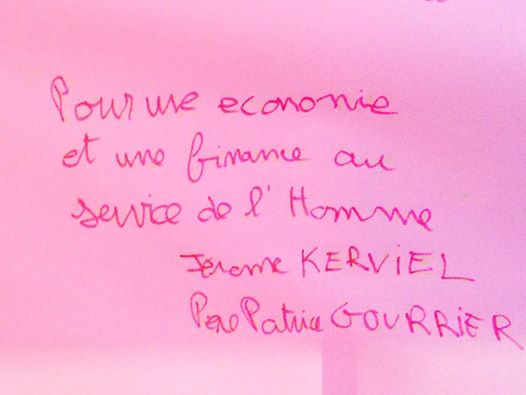 Pour une economie
et une finance au
service de l'Homme
Jérome KERVIEL
Père Patrice GOURRIER